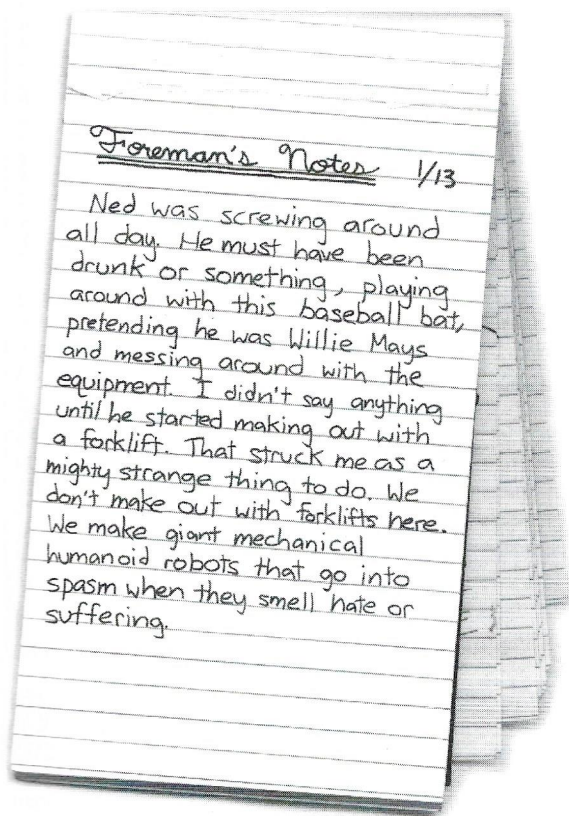 Foreman's Notes 1/13
Ned was screwing around
all day. He must have been
drunk or something, playing
around with this baseball bat,
pretending he was Willie Mays
and messing around with the
equipment. I didn't say anything
until he started making out with
a forklift. That struck me as a
mighty strange thing to do. We
don't make out with forklifts here.
We make giant mechanical
humanoid robots that go into
spasm when they smell hate or
suffering.